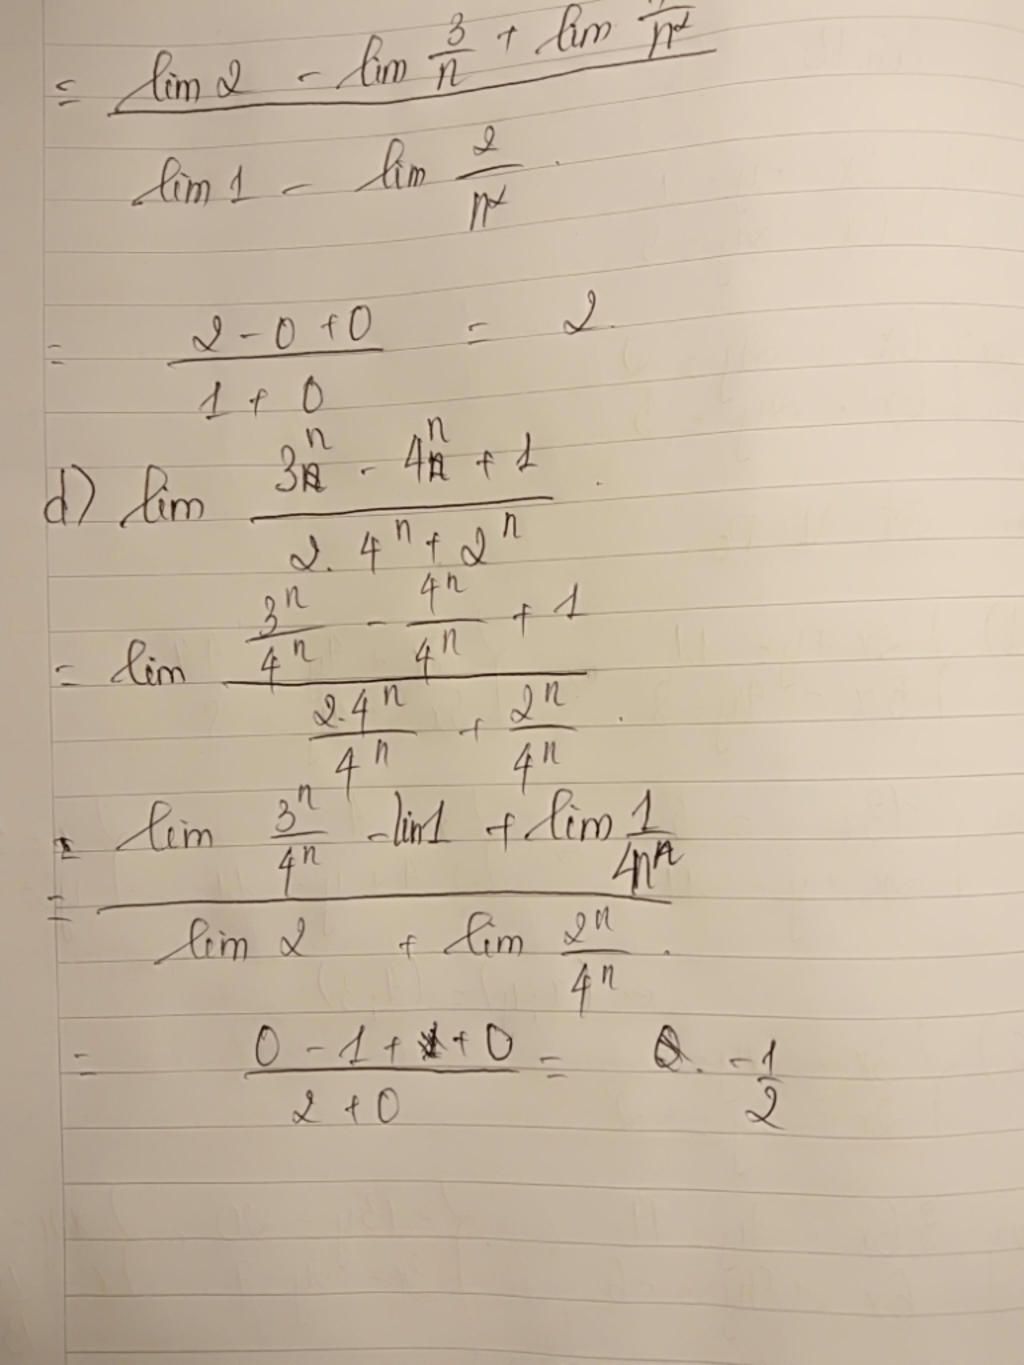 = (lim 2 - lim 3/n + lim /n²) / (lim 1 - lim 2/n²).
= (2 - 0 + 0) / (1 + 0) = 2.
d) lim (3ⁿ - 4ⁿ + 1) / (2. 4ⁿ + 2ⁿ).
= lim (3ⁿ/4ⁿ - 4ⁿ/4ⁿ + 1) / (2.4ⁿ/4ⁿ + 2ⁿ/4ⁿ).
= (lim 3ⁿ/4ⁿ - lim 1 + lim 1/4ⁿ) / (lim 2 + lim 2ⁿ/4ⁿ).
= (0 - 1 + + 0) / (2 + 0) = . -1/2